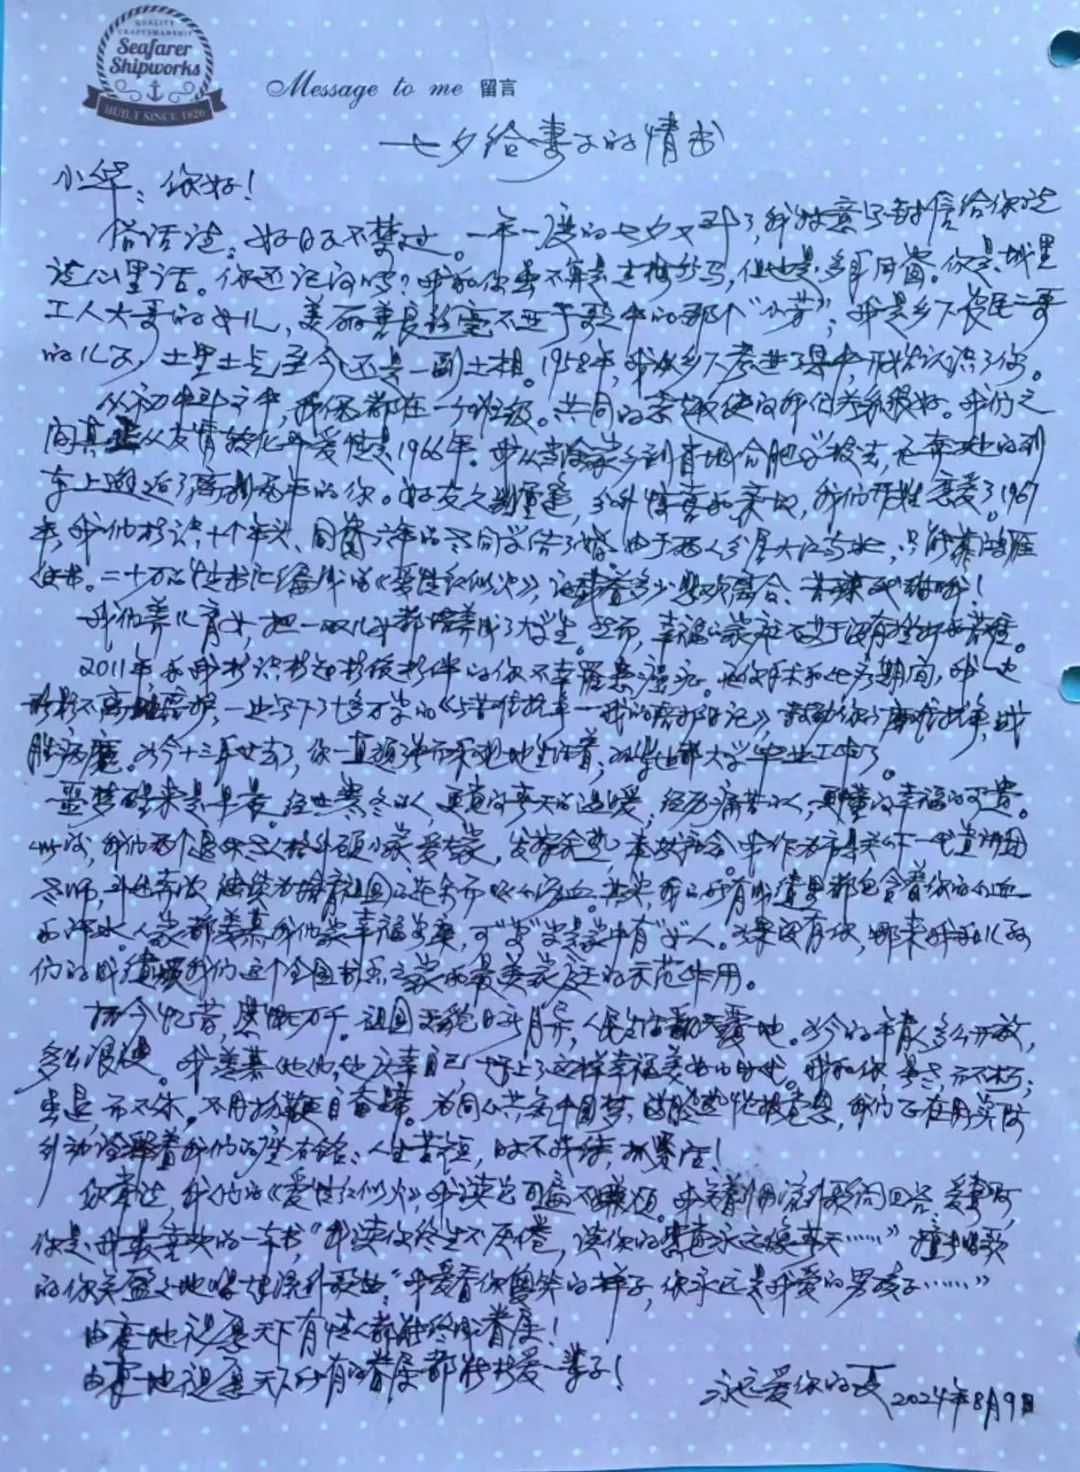 QUALITY
CRAFTSMANSHIP
Seafarer
Shipworks
BUILT SINCE 1826
Message to me 留言
七夕给妻子的情书
小华：你好！
俗话说：好日子不禁过。一年一度的七夕又到了，我特意写封信给你说
说心里话。你还记得吗？我和你虽不算青梅竹马，但也是多年同窗。你是城里
工人大哥的女儿，美丽善良 不亚于歌中的那个“小芳”；我是乡下农民二哥
的儿子，土里土气至今还是一副土相。1958年，我从乡下考进了县中，开始认识了你。
从初中到高中，我俩都在一个班级。共同的 使得我们关系很好。我们之
间真正从友情转化为爱情是1966年。我从 家乡到 合肥学校去，在奔驰的列
车上邂逅了离别 的你。好友久别重逢，分外惊喜和亲切，我们开始恋爱了。1967
年，我们相识十个年头、同窗六年的老同学结了婚。由于两人分居大江南北，只能靠鸿雁
传书。二十万 情书汇编成的《爱情红似火》，记载着多少悲欢离合、苦辣 甜啊！
我们养儿育女，把一双儿女都培养成了大学生。然而，幸福的家庭不等于没有挫折和苦难。
2011年和我相识相知相依相伴的你不幸罹患癌症。在你手术和化疗期间，我一边
形影不离地陪护，一边写下了十多万字的《与苦情抗争—我的陪护日记》，鼓励你与病魔抗争，战
胜病魔。如今十三年过去了，你一直顽强而乐观地生活着， 也都大学毕业工作了。
噩梦醒来是早晨。经过寒冬的人，更觉得春天的温暖；经历痛苦的人，更懂得幸福的可贵。
，我们两个退休老人格外顾小家爱大家，发挥余热， 作为市关工下一代宣讲团
老师， 继续为培育祖国的花朵而呕心沥血。其实，我的所有成绩里都包含着你的心血
和汗水。人家都羡慕我们家幸福安康，可“安”字是家中有“女”人。如果没有你，哪来我和儿孙
们的成绩及我们这个全国书香之家和最美家庭的示范作用。
抚今忆昔，感慨万千。祖国面貌日新月异，人民生活翻天覆地。如今的年轻人多么开放，
多么浪漫。我羡慕他们，也庆幸自己赶上了这样幸福美好的时代。我和你，老，而不朽；
虽退，而不休。不用扬鞭自奋蹄。为同心共筑中国梦， ，我们正在用实际
行动诠释着我们的座右铭：人生苦短，时不我待，抓紧活！
你常说，我们的《爱情红似火》，我读千遍不厌烦。我 用流行歌词回答：爱妻啊，
你是我最喜欢的一本书“我读你终生不厌倦，读你的 永远像春天……” 唱歌
的你笑盈盈地唱 流行歌曲：“我爱看你傻笑的样子，你永远是我爱的男孩子……”
由衷地祝愿天下有情人都能终成眷属！
由衷地祝愿天下所有的眷属都能相爱一辈子！
永远爱你的夏 2024年8月9日